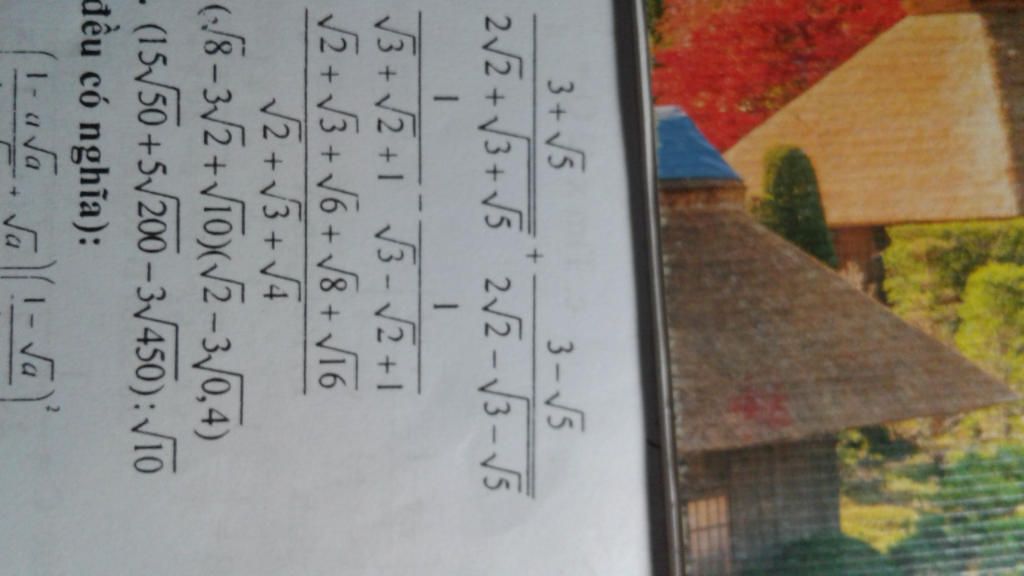 3 + √5 3 − √5
2√2 + √(3 + √5) + 2√2 − √(3 − √5)
1 1
√3 + √2 + 1 − √3 − √2 + 1
√2 + √3 + √6 + √8 + √16
√2 + √3 + √4
√8 − 3√2 + √10)(√2 − 3√0,4)
(15√50 + 5√200 − 3√450) : √10
đều có nghĩa):
(1 - a√a + √a)(1 − √a)²